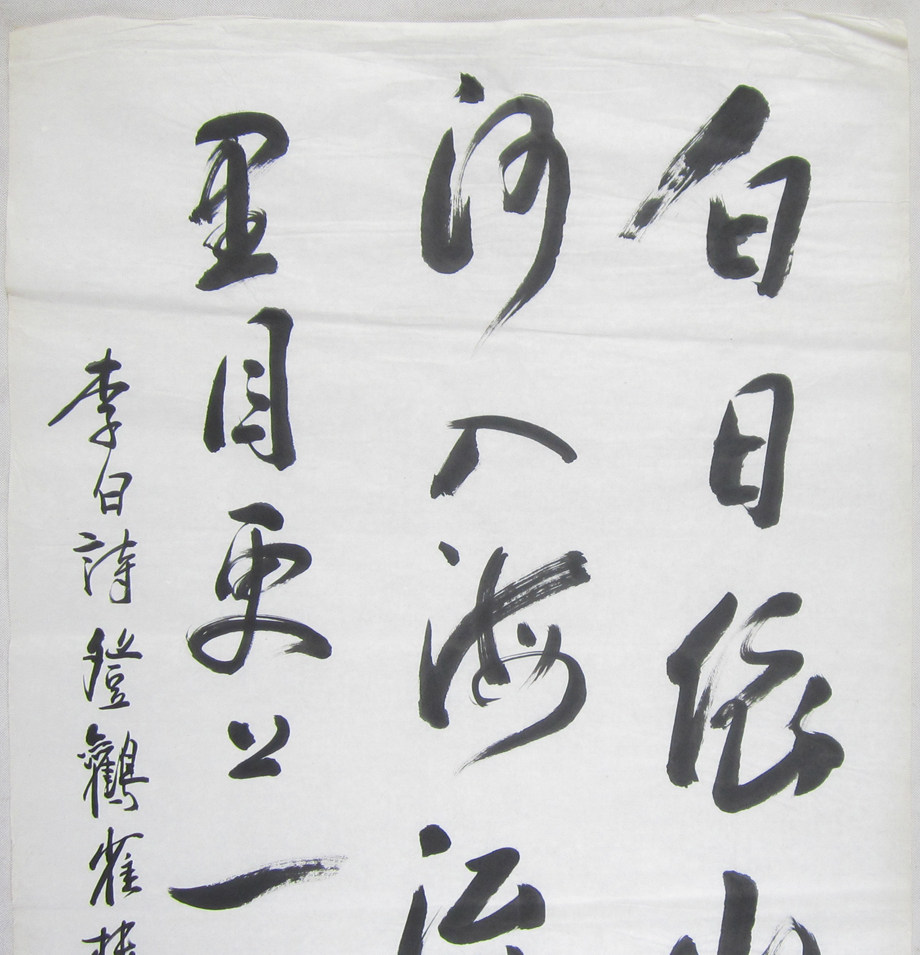 白日依山
河入海流
里目更上一
李白詩登鸛雀